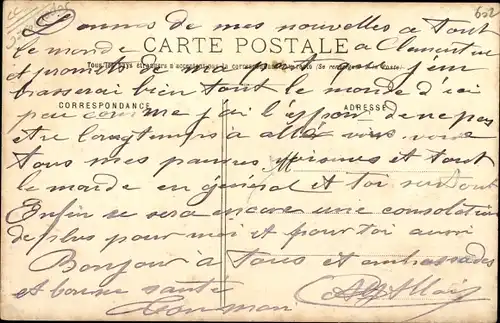 Donnes de mes nouvelles a tout
le monde a Clementine
CARTE POSTALE
et promets de ma part que j'em
Tous les pays étrangers n'acceptent pas la correspondance au recto (Se renseigner à la Poste)
brasserai bien tout le monde d'ici
CORRESPONDANCE
ADRESSE
peu comme j'ai l'espoir de ne pas
etre longtemps a aller vous voir
tous mes pauvres voisines et tout
le monde en général et toi surtout
Enfin se sera encore une consolation
de plus pour moi et pour toi aussi
Bonjour à tous et embrassades
et bonne santé
Ton mari